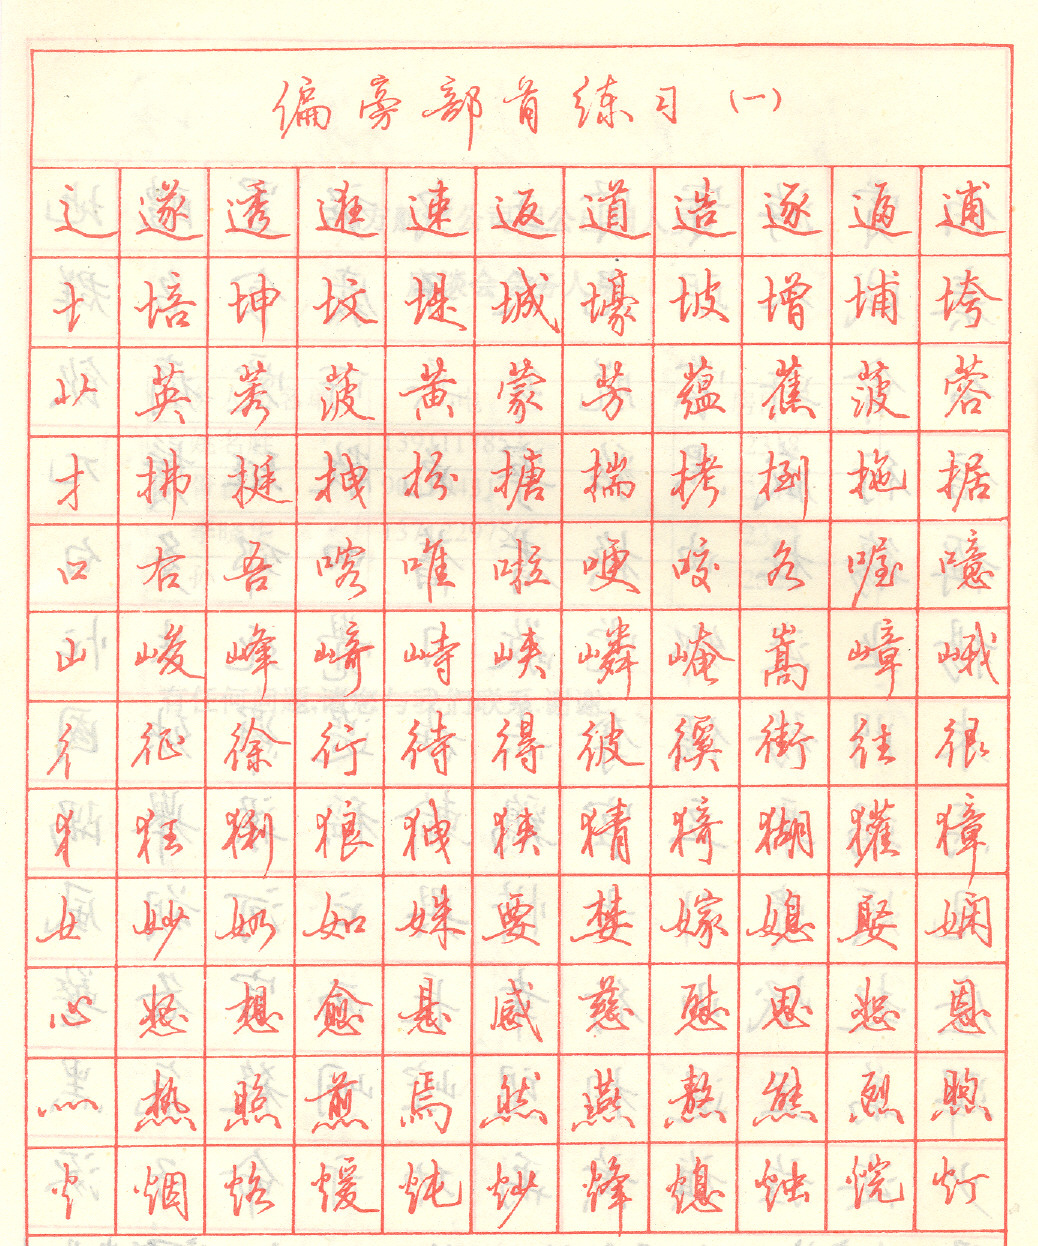 偏旁部首练习（一）
辶 遂 透 逛 速 返 道 造 逐 逼 逋
土 培 坤 坟 堤 城 壕 坡 增 埔 垮
艹 英 菠 黄 蒙 劳 蕴 蕉 菠 蓉
扌 拂 挺 拽 搪 揣 拷 捌 拖 据
口 右 吾 喀 唯 啦 哽 咬 名 喔 噫
山 峻 峰 崎 峙 峡 嶙 崦 嵩 嶂 峨
彳 征 徐 行 待 得 彼 徯 街 往 很
犭 狂 猁 狼 狭 猜 猗 猢 獾 獐
女 妙 奶 如 姝 要 婪 嫁 媳 娶 娴
心 想 愈 悬 感 慈 慰 思 恕 恩
灬 热 照 煎 焉 然 燕 熬 熊 烈 煦
火 烟 烙 煖 炖 炒 烽 熄 烛 烷 灯